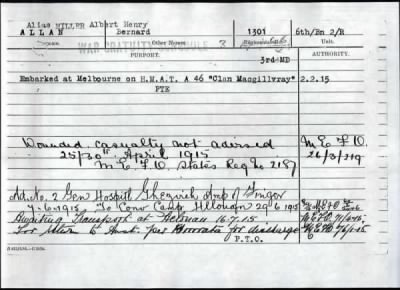 Alias MILLER Albert Henry
ALLAN Bernard 1301 6th/Bn 2/R
Surname. Other Names. Unit.
WAR GRATUITY SCHEDULE
PURPORT. AUTHORITY.
3rd MD
Embarked at Melbourne on H.M.A.T. A 46 "Clan Macgillivray" 2.2.15
PTE
Wounded casualty not advised M.E.F.O.
25/30th April 1915 26/3/319
M.E.F.O. States Reg No 2187
Ad. No. 2 Gen Hospital Ghezireh Amp of Finger
7-6-1915. To Conv Camp Helouan 29 6 1915
Awaiting Transport at Helouan 16.7.15
For return to Aust. per for discharge
P.T.O.